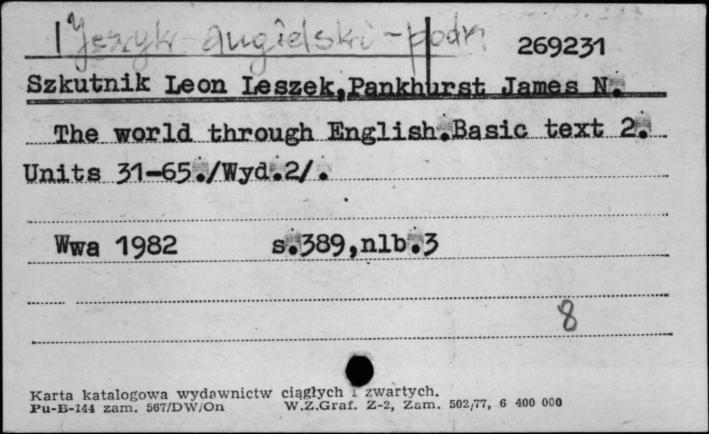 Język angielski - podr. 269231
Szkutnik Leon Leszek,Pankhurst James N.
The world through English.Basic text 2.
Units 31-65./Wyd.2/.
Wwa 1982 s.389,nlb.3
8
Karta katalogowa wydawnictw ciągłych i zwartych.
Pu-B-144 zam. 567/DW/On W.Z.Graf. Z-2, Zam. 502/77, 6 400 000